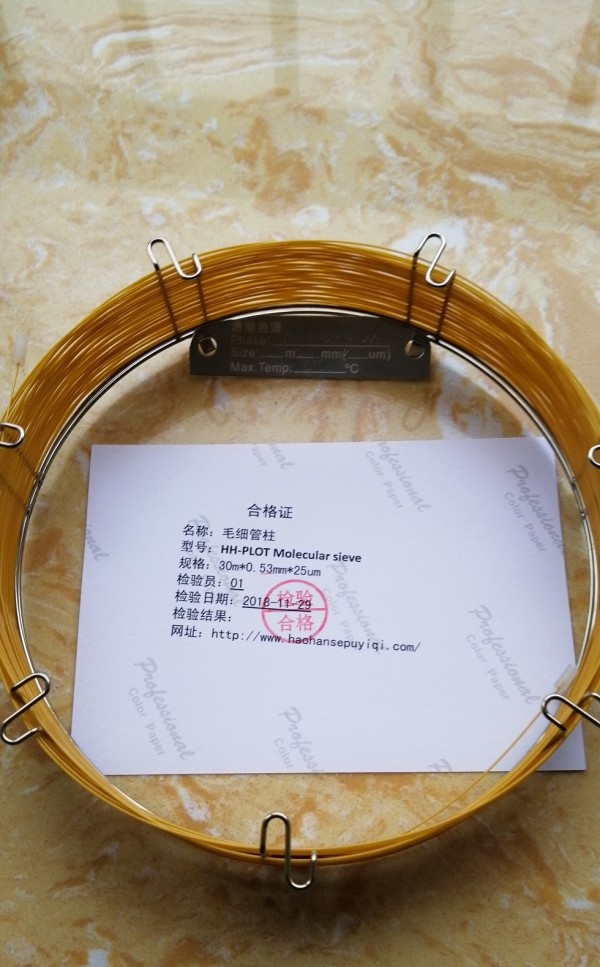 Phase:
Size:____m___mm(___um)
Max.Temp:______°C
Professional
Color Paper
合格证
名称：毛细管柱
型号：HH-PLOT Molecular sieve
规格：30m*0.53mm*25um
检验员：01
检验日期：2018-11-29
检验结果：
检验
合格
网址：http://www.haohansepuyiqi.com/
Professional
Color Paper
Professional
Color Paper
Professional
Color Paper